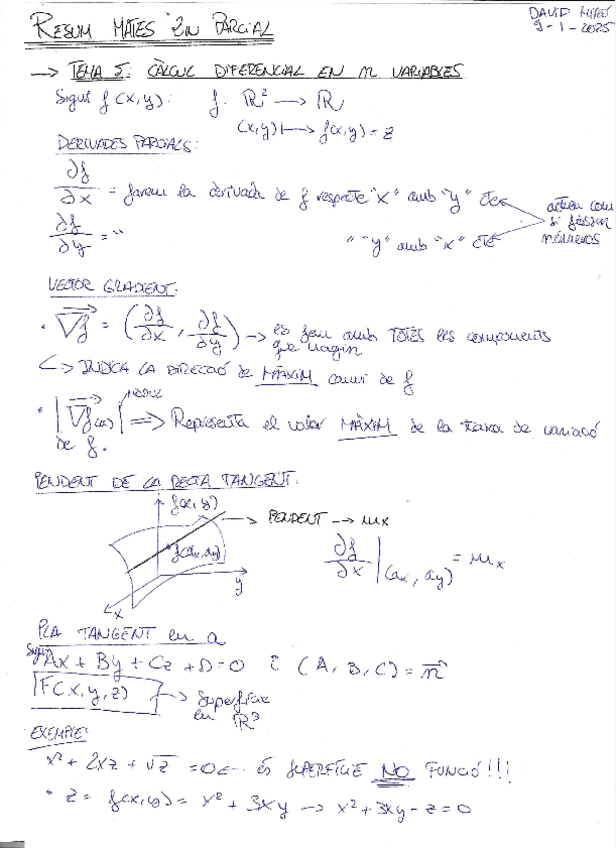 RESUM MATES 2n PARCIAL
9-1-2025
→ TEMA 5: CÀLCUL DIFERENCIAL EN n VARIABLES
Sigui f(x,y): f: ℝ² → ℝ
(x,y) ↦ f(x,y) = z
DERIVADES PARCIALS:
∂f/∂x = farem la derivada de f respecte "x" amb "y" cte
actuen com si fossin números
∂f/∂y = " " "y" amb "x" cte
VECTOR GRADIENT:
• ∇f = (∂f/∂x, ∂f/∂y) → es fem amb TOTES les components
que hagin
↳ INDICA LA DIRECCIÓ de MÀXIM canvi de f
• |∇f(a)| MÒDUL ⇒ Representa el valor MÀXIM de la taxa de variació
de f.
PENDENT DE LA RECTA TANGENT:
f(x,y)
→ PENDENT → mx
f(ax,ay)
∂f/∂x |(ax, ay) = mx
y
x
PLA TANGENT en a
Sigui Ax + By + Cz + D = 0 i (A, B, C) = n
F(x,y,z) → superfície
en ℝ³
EXEMPLE:
x² + 2xz + √z = 0 ← és SUPERFÍCIE NO FUNCIÓ!!!
• z = f(x,y) = x² + 3xy → x² + 3xy - z = 0